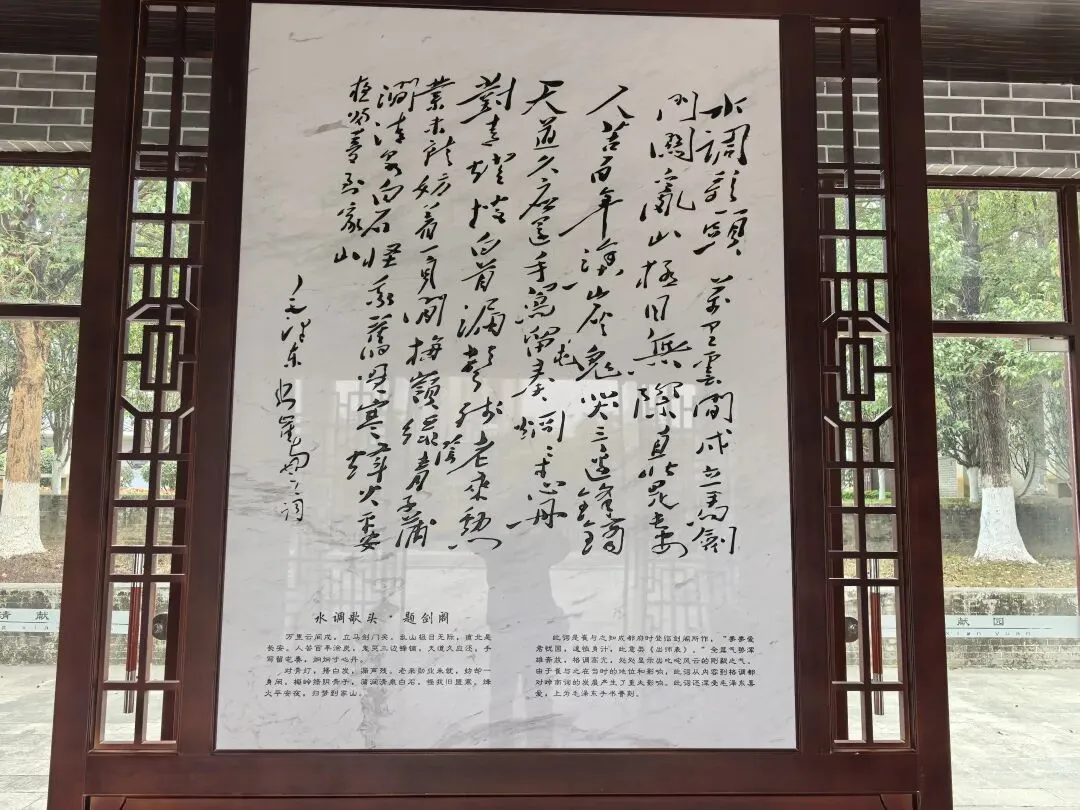 水調歌頭 萬里雲間戍立馬劍
門關亂山極目無際直北是長安
人苦百年塗炭鬼哭三邊鋒鏑
天道久應還手寫留屯奏炯炯寸心丹
對青燈搔白首漏聲殘老來勳
業未就妨着一身閒梅嶺綠陰青子蒲
澗清泉白石怪我舊盟寒烽火平安
夜歸夢到家山
毛澤東 書崔與之詞
水调歌头·题剑阁
万里云间戍,立马剑门关。乱山极目无际,直北是
长安。人苦百年涂炭,鬼哭三边锋镝,天道久应还,手
写留屯奏,炯炯寸心丹。
对青灯,搔白发,漏声残。老来勋业未就,妨却一
身闲。梅岭绿阴青子,蒲涧清泉白石,怪我旧盟寒。烽
火平安夜,归梦到家山。
此词是崔与之知成都府时登临剑阁所作,“惓惓爱
君忧国,遑恤身计,此意类《出师表》”。全篇气势浑
雄奔放,格调高亢,处处显示出叱咤风云的刚毅之气。
由于崔与之在当时的地位和影响,此词从内容到格调都
对岭南词的发展产生了重大影响。此词还深受毛泽东喜
爱,上为毛泽东手书刻。
清 献
献 园